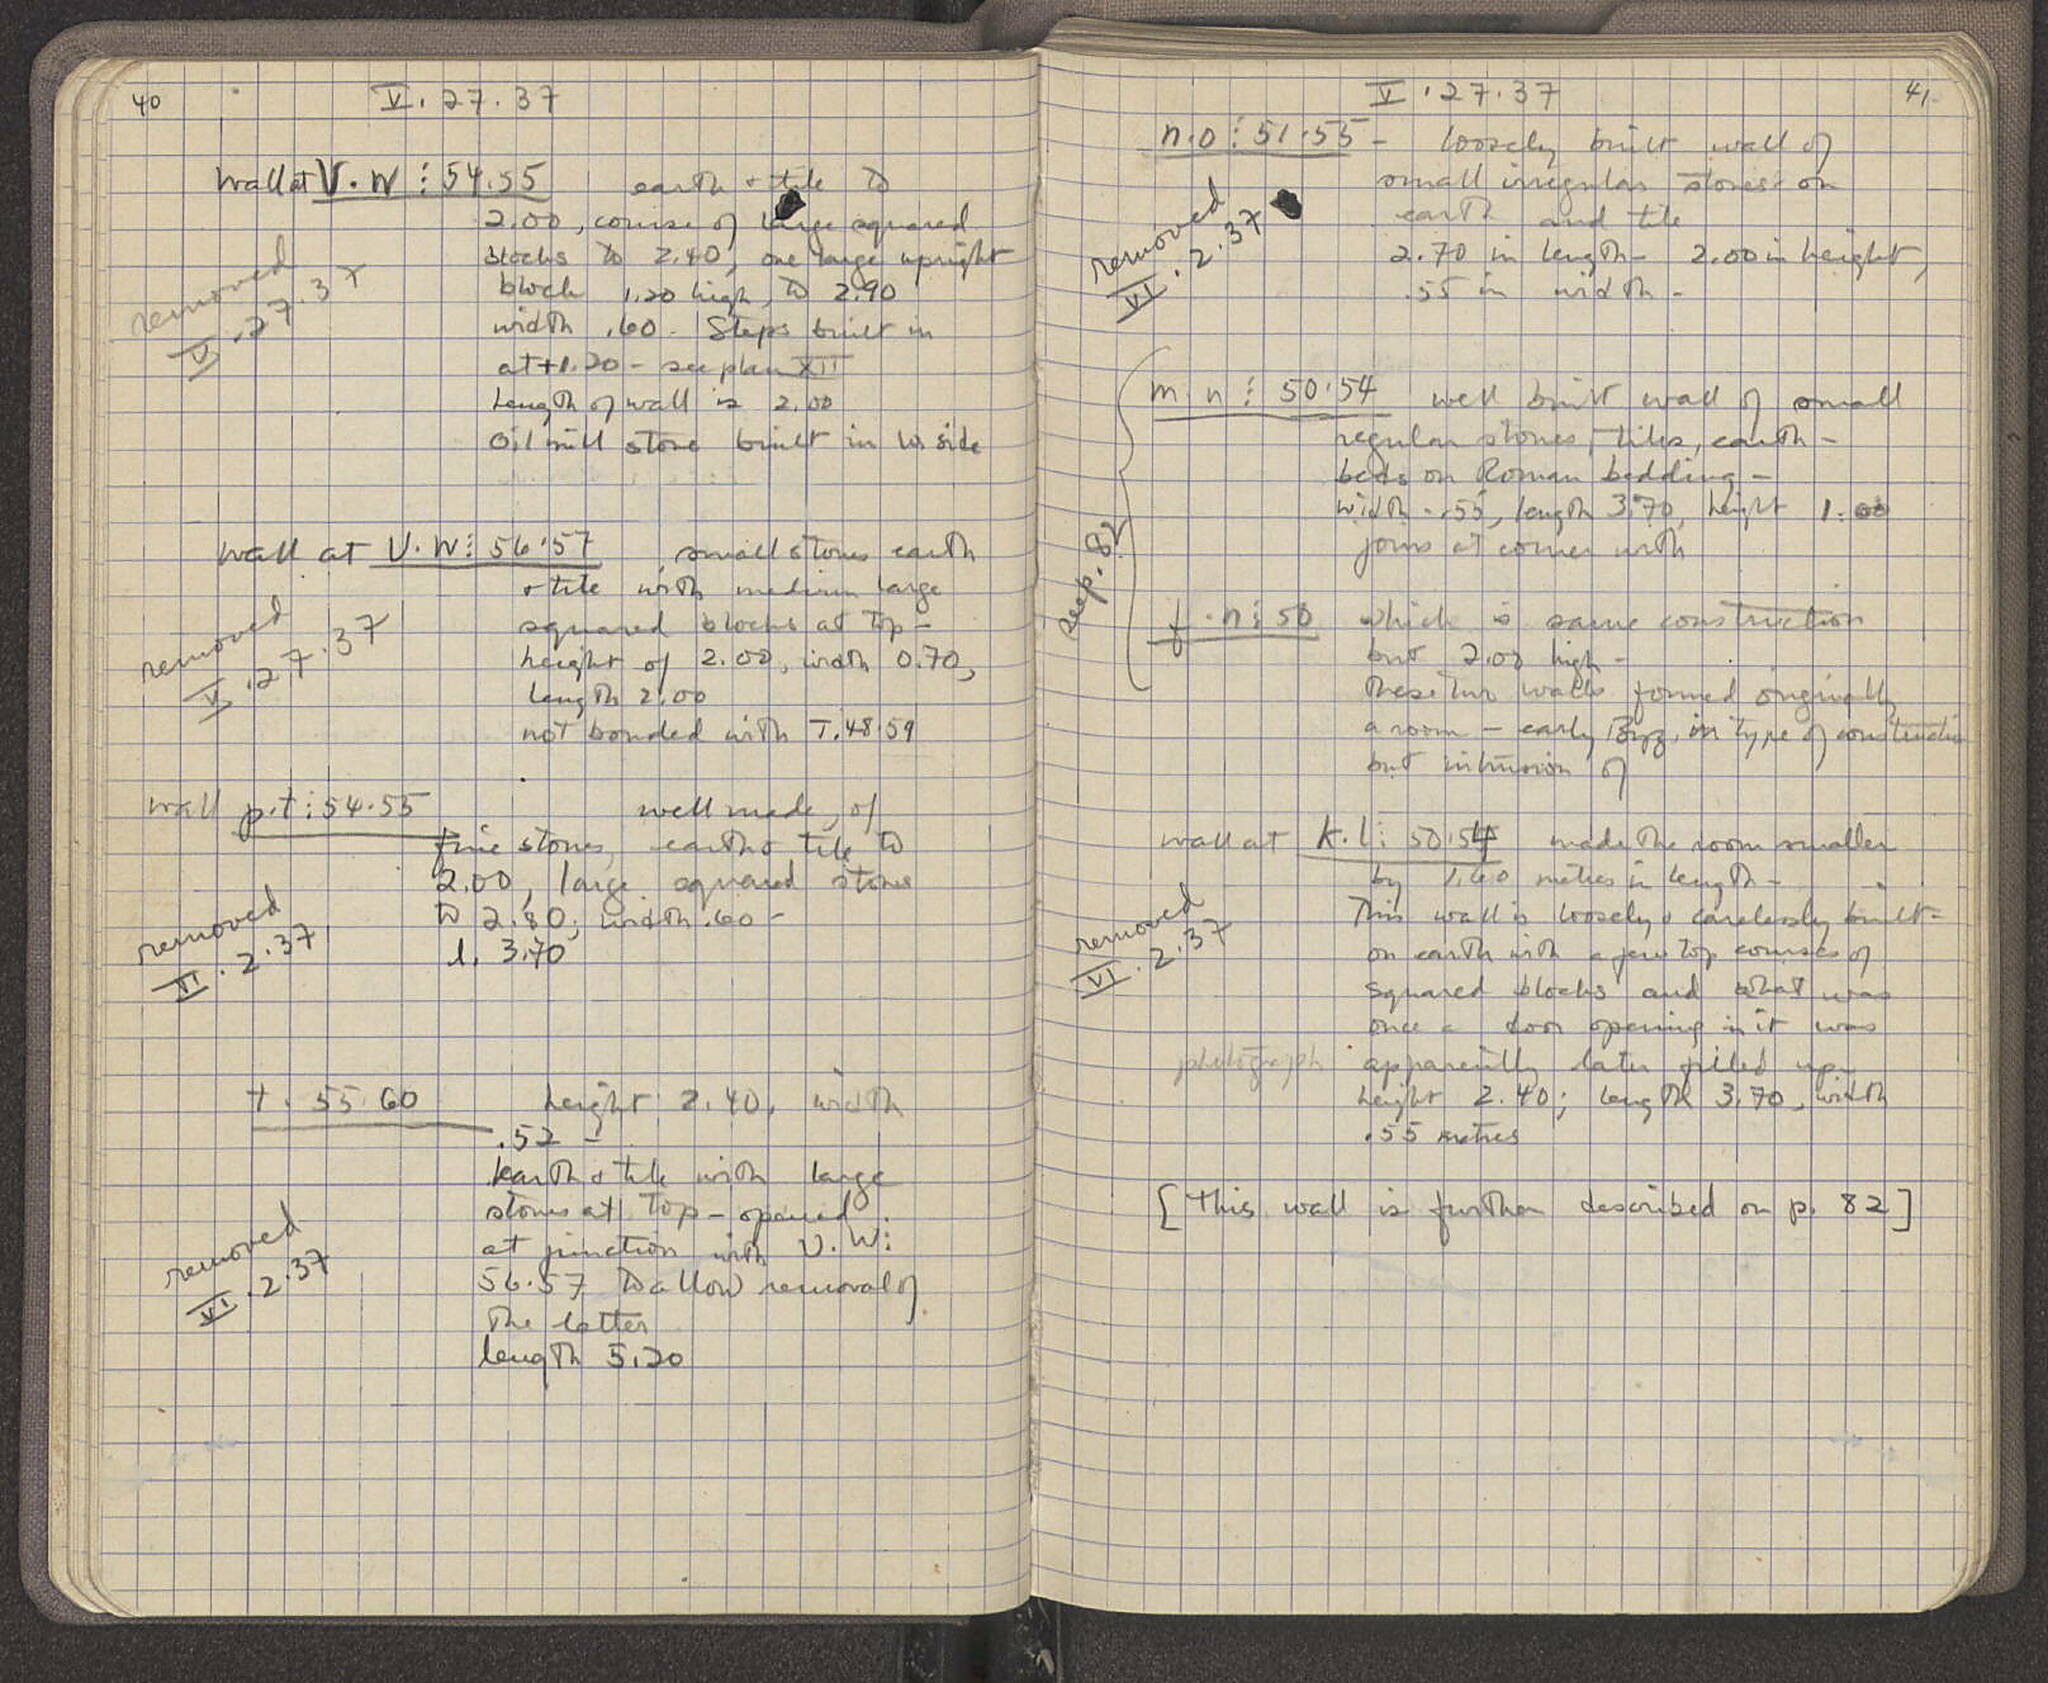 40
V. 27. 37
Wall at V. W ⋮ 54.55 earth + tile to
2.00, course of large squared
blocks to 2.40, one large upright
block 1.20 high, to 2.90
width .60 - Steps built in
at +1.20 - see plan XII
Length of wall is 2.00
Oil mill stone built in W. side
removed
V. 27. 37
wall at U. W ⋮ 56.57 small stones earth
+ tile with medium large
squared blocks at top -
height of 2.00, width 0.70,
length 2.00
not bonded with T. 48.59
removed
V. 27. 37
wall p.t ⋮ 54.55 well made, of
fine stones, earth + tile to
2.00, large squared stones
to 2.80; width .60 -
l. 3.70
removed
VI. 2. 37
t. 55 60 height 2.40, width
.52 -
Earth + tile with large
stones at top - opened
at junction with U. W:
56.57 to allow removal of
the latter
length 5.20
removed
VI. 2. 37
41
V. 27. 37
n.o ⋮ 51.55 - loosely built wall of
small irregular stones on
earth and tile
2.70 in length - 2.00 in height,
.55 in width -
removed
VI. 2. 37
m. n ⋮ 50.54 well built wall of small
regular stones, tiles, earth -
beds on Roman bedding -
width - .55, length 3.70, height 1.00
joins at corner with
see p. 82
f. n ⋮ 50 which is same construction
but 2.00 high -
these two walls formed originally
a room - early Byz. in type of construction
but intrusion of
wall at k. l ⋮ 50.54 made the room smaller
by 1.60 metres in length -
This wall is loosely + carelessly built -
on earth with a few top courses of
squared blocks and what was
once a door opening in it was
photograph apparently later filled up -
height 2.40; length 3.70, width
.55 metres
removed
VI. 2. 37
[This wall is further described on p. 82]